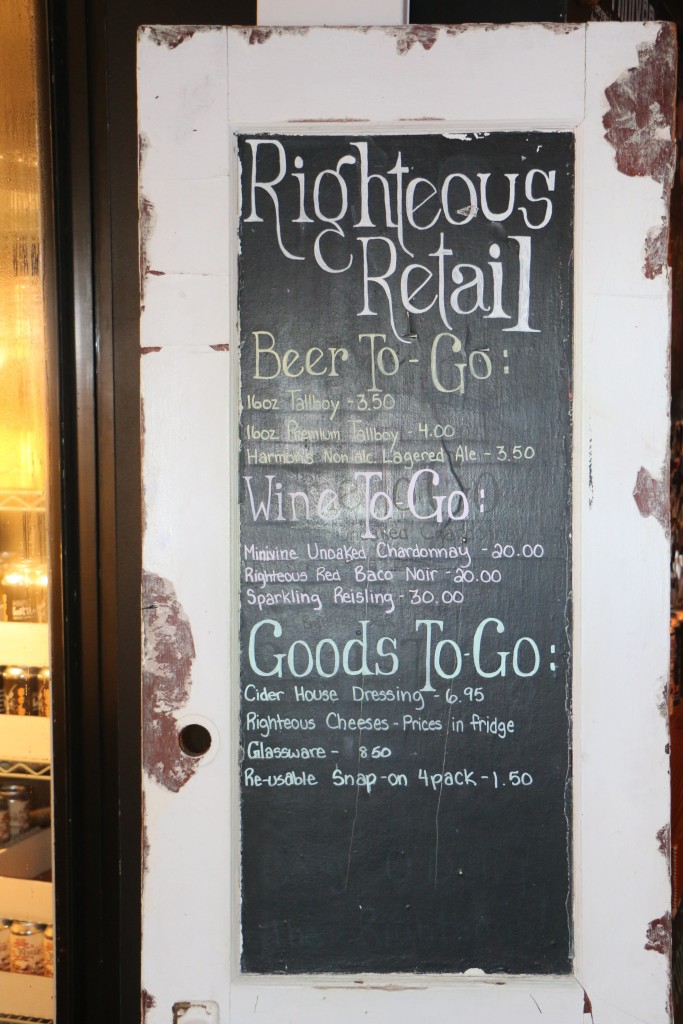 Righteous
Retail
Beer To-Go:
16oz Tallboy - 3.50
16oz Premium Tallboy - 4.00
Harmon's Non alc Lagered Ale - 3.50
Wine To Go:
Minivine Unoaked Chardonnay - 20.00
Righteous Red Baco Noir - 20.00
Sparkling Reisling - 30.00
Goods To-Go:
Cider House Dressing - 6.95
Righteous Cheeses - Prices in fridge
Glassware - 8.50
Re-usable Snap-on 4pack - 1.50